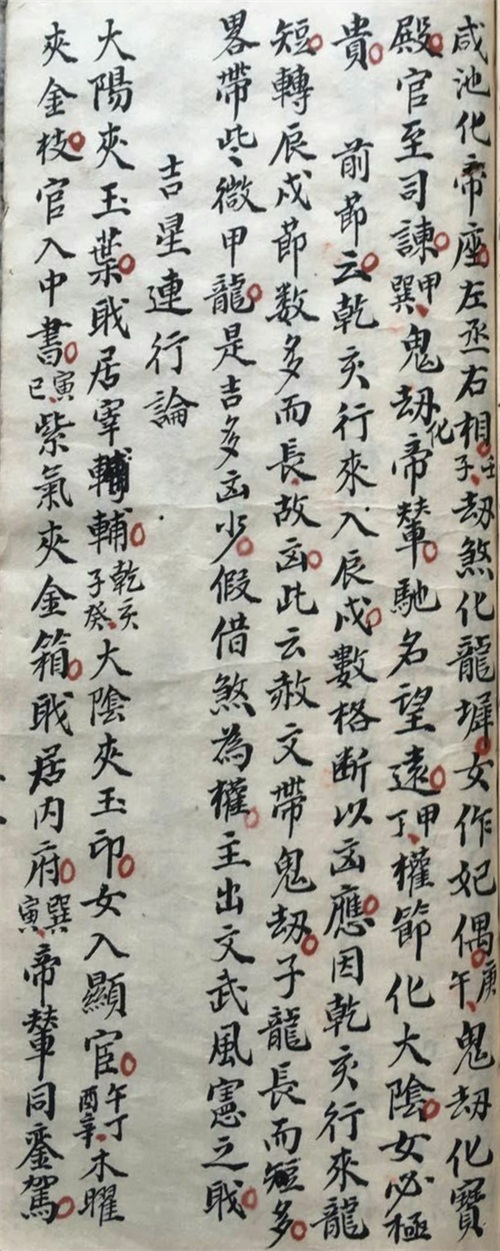 咸池化帝座左丞右相壬子劫煞化龍墀女作妃偶庚午鬼劫化寶
殿官至司諫甲巽鬼劫化帝輦馳名望遠甲丁權節化大陰女必極
貴　前節云乾亥行來入辰戌數格断以凶應因乾亥行來龍
短轉辰戌節数多而長故凶此云赦文帶鬼劫子龍長而短多
畧帶些微甲龍是吉多凶少假借煞為權主出文武風憲之戝
吉星連行論
大陽夾玉葉戝居宰輔乾亥子癸大陰夾玉印女入顯宦午丁酉辛木曜
夾金枝官入中書寅巳紫氣夾金箱戝居内府巽寅帝輦同鑾駕